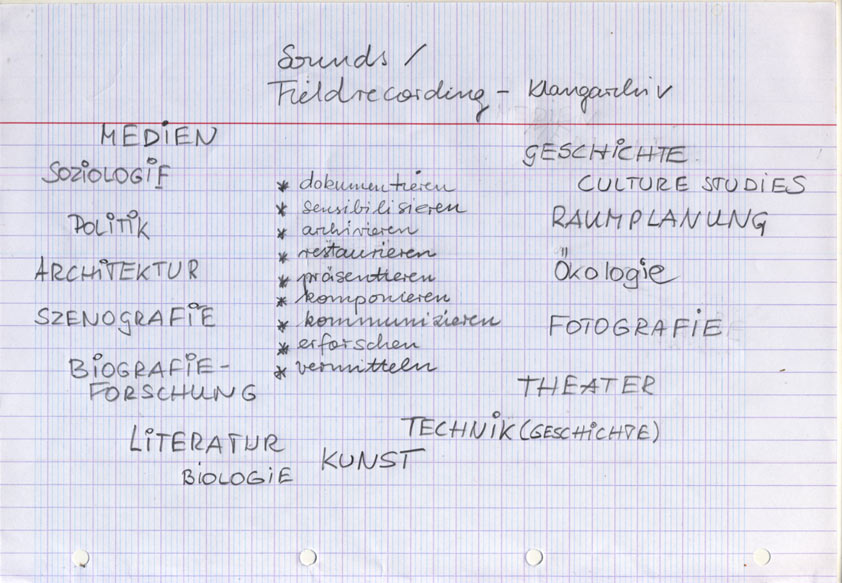 Sounds /
Fieldrecording - Klangarchiv
MEDIEN
SOZIOLOGIE
POLITIK
ARCHITEKTUR
SZENOGRAFIE
BIOGRAFIE-
FORSCHUNG
LITERATUR
BIOLOGIE
KUNST
* dokumentieren
* sensibilisieren
* archivieren
* restaurieren
* präsentieren
* komponieren
* kommunizieren
* erforschen
* vermitteln
GESCHICHTE
CULTURE STUDIES
RAUMPLANUNG
Ökologie
FOTOGRAFIE
THEATER
TECHNIK (GESCHICHTE)